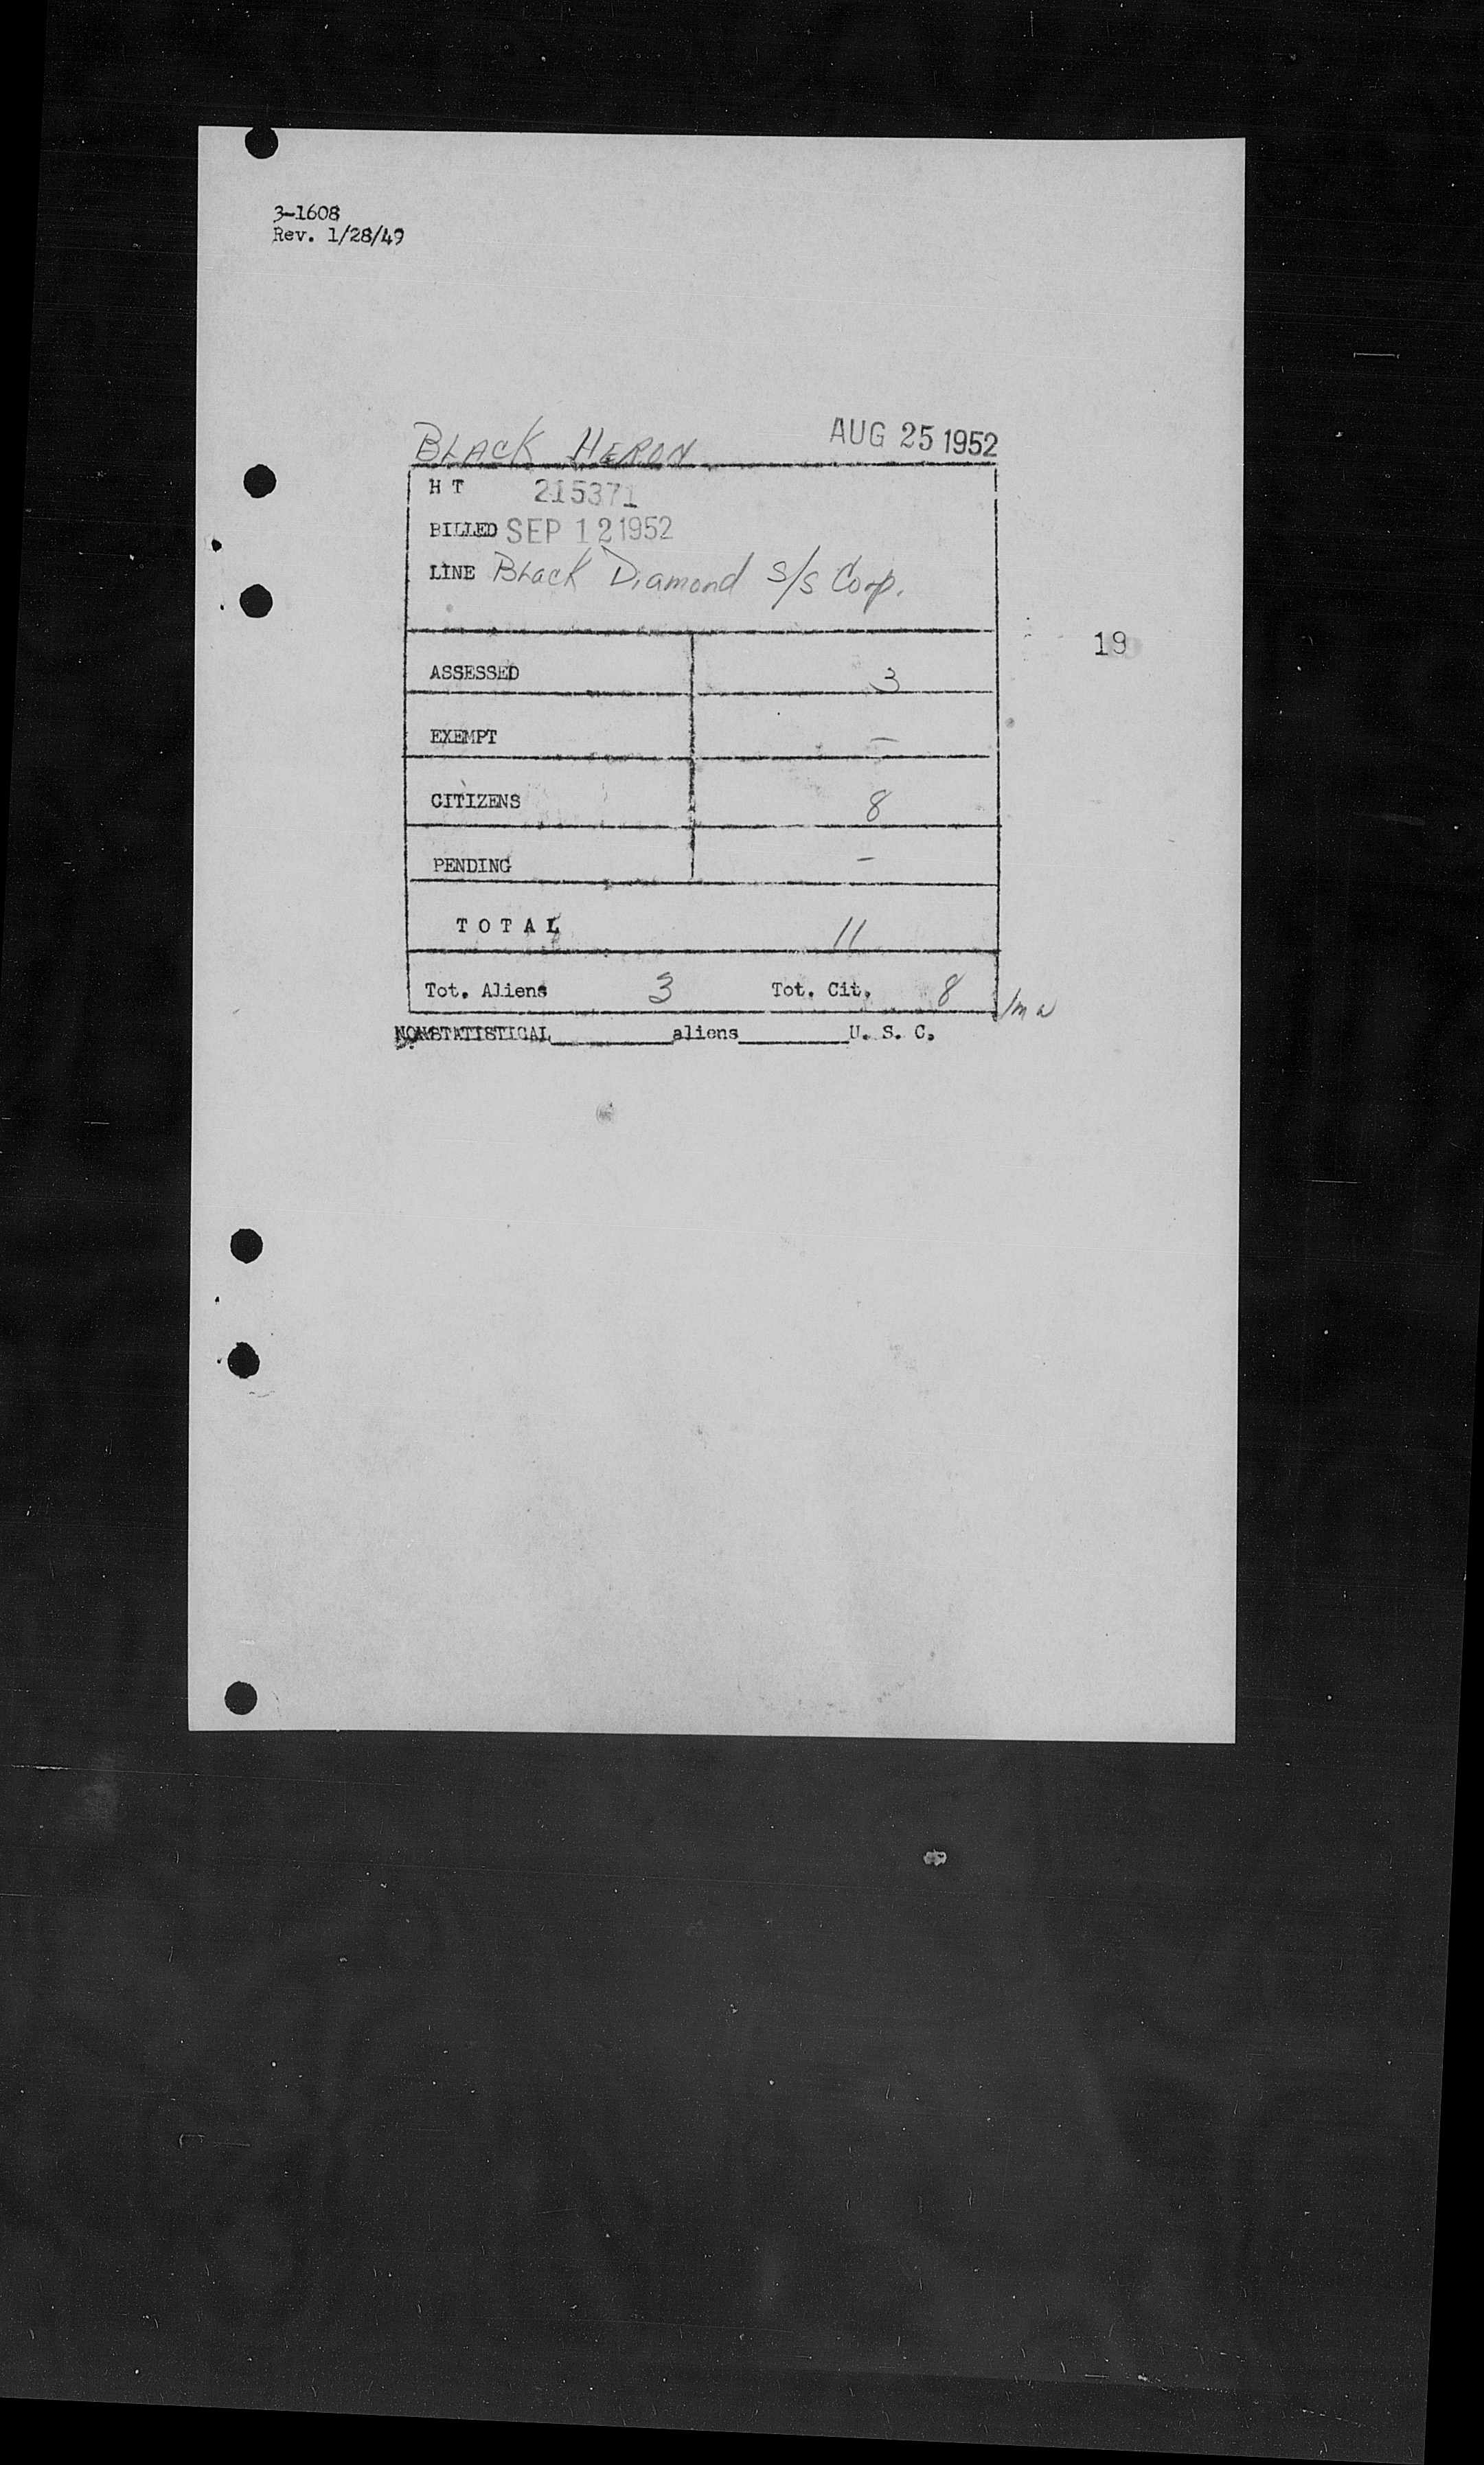 3-1608
Rev. 1/28/49
BLACK HERON AUG 25 1952
H T 215371
BILLED SEP 12 1952
LINE Black Diamond S/S Corp.
19
ASSESSED 3
EXEMPT –
CITIZENS 8
PENDING –
T O T A L 11
Tot. Aliens 3 Tot. Cit. 8
NONSTATISTICAL__________aliens__________U. S. C.